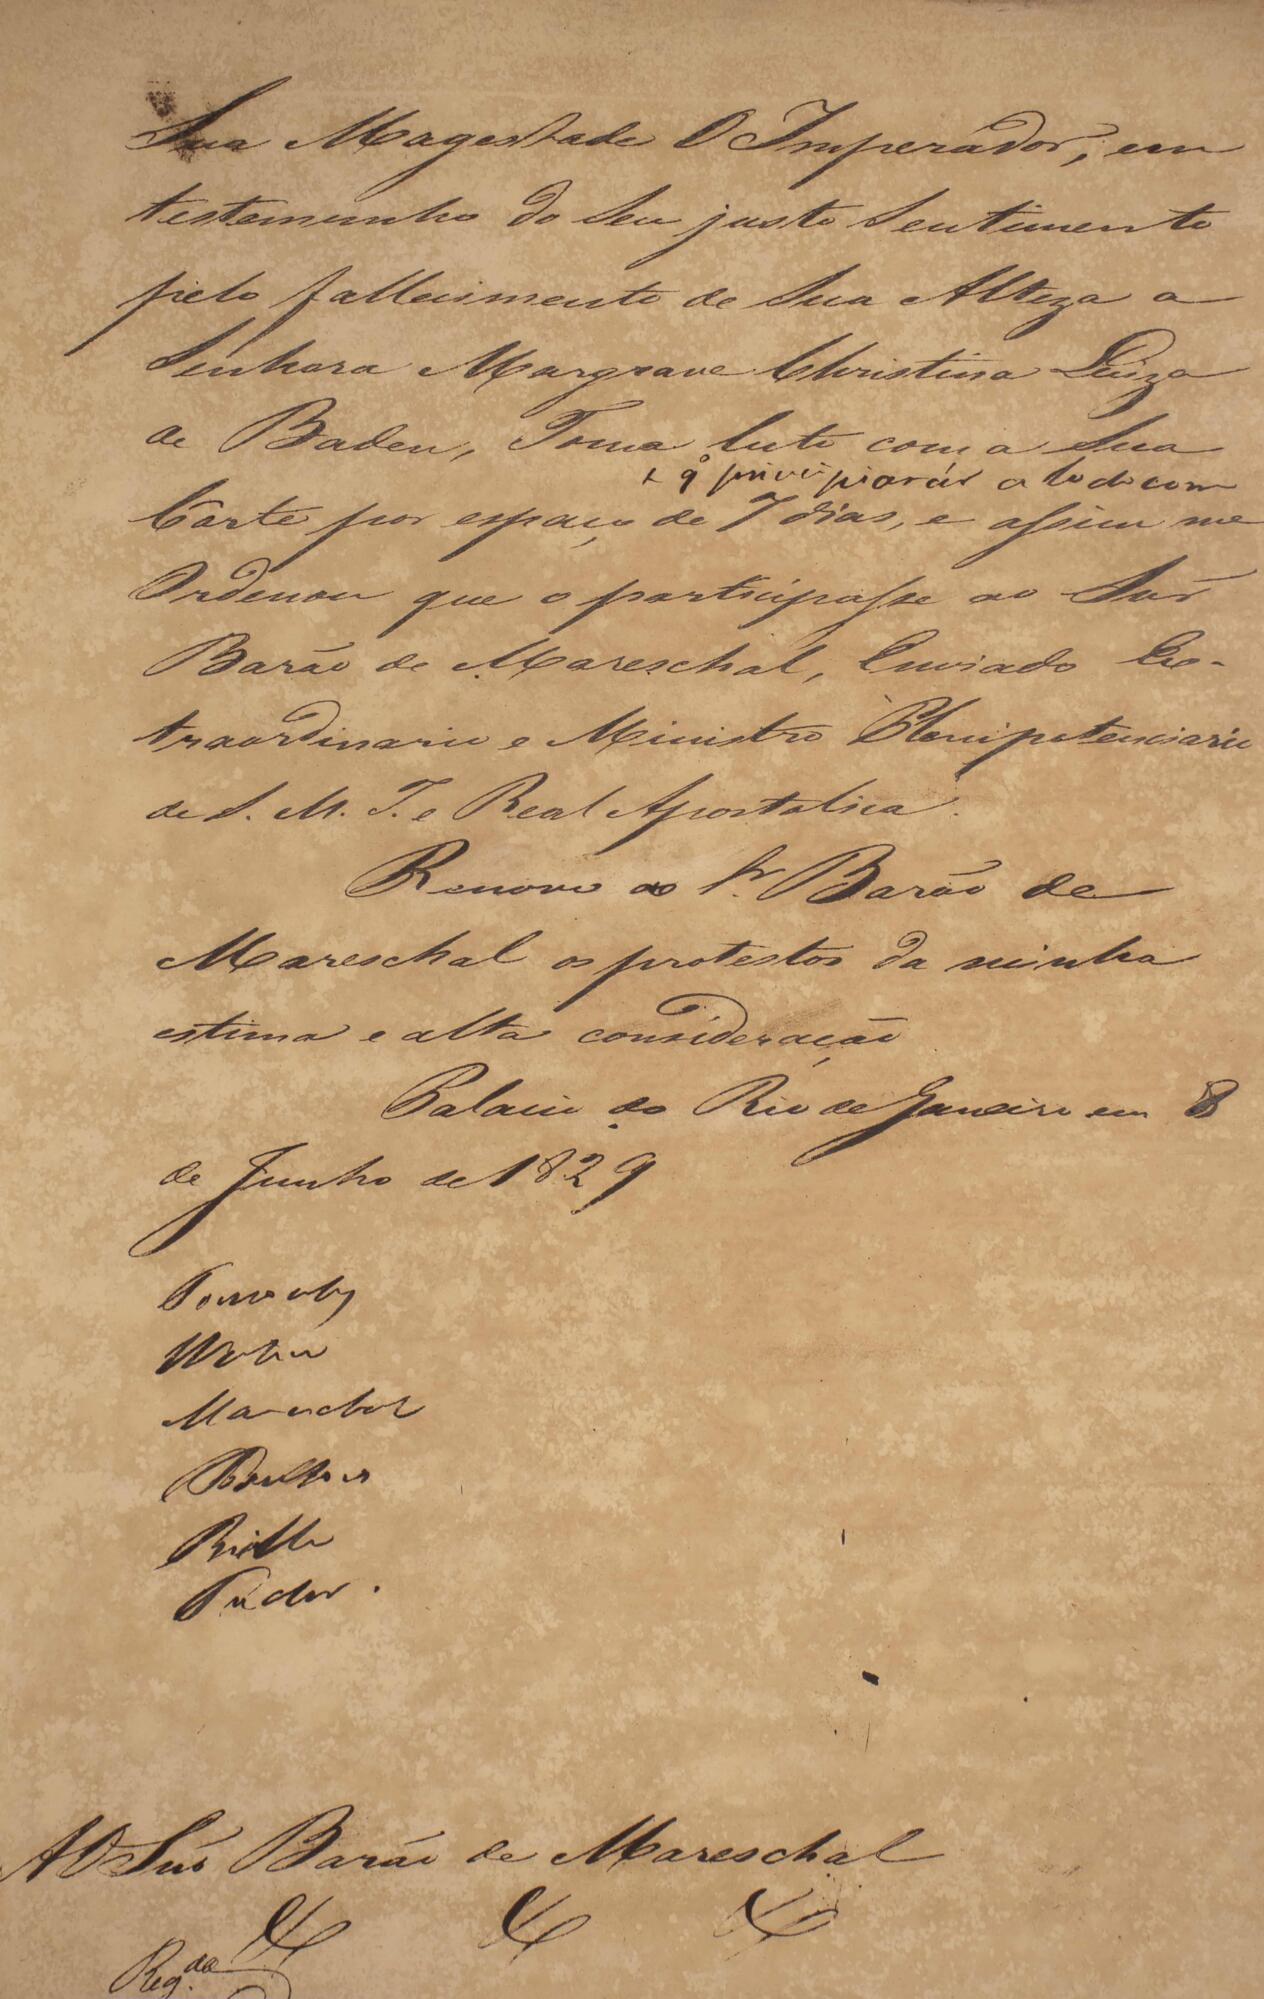 Sua Magestade O Imperador, em
testemunho do Seu justo Sentimento
pelo fallecimento de Sua Alteza a
Senhora Margrave Christina Luiza
de Baden, Toma luto com a Sua
q̃ principiará a
Corte por espaço de 7 dias, e assim me
Ordenou que o participasse ao Snr̃
Barão de Mareschal, Enviado Ex-
traordinario e Ministro Plenipotenciario
de S. M. I. e Real Apostolica.
Renovo ao Sr. Barão de
Mareschal os protestos da minha
estima e alta consideração
Palacio do Rio de Janeiro em 8
de Junho de 1829
Mareschal
Tudor.
Ao Snr̃ Barão de Mareschal
Reg.da